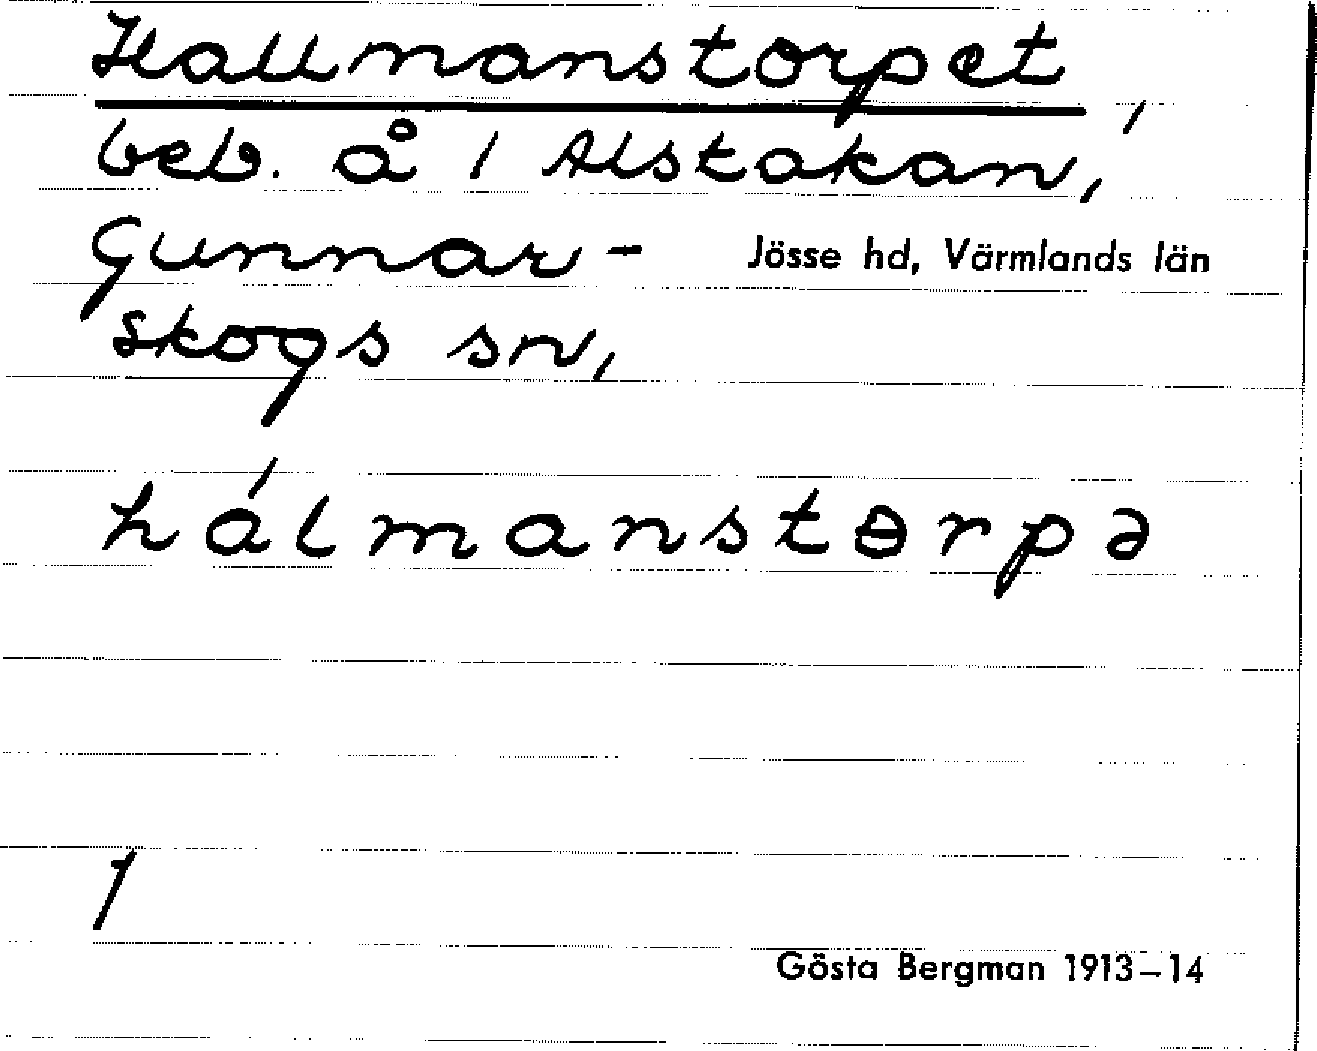 Hallmanstorpet,
beb. å 1 Alstakan,
Gunnar- Jösse hd, Värmlands län
skogs sn,
hálmanstɵrpə
1
Gösta Bergman 1913–14